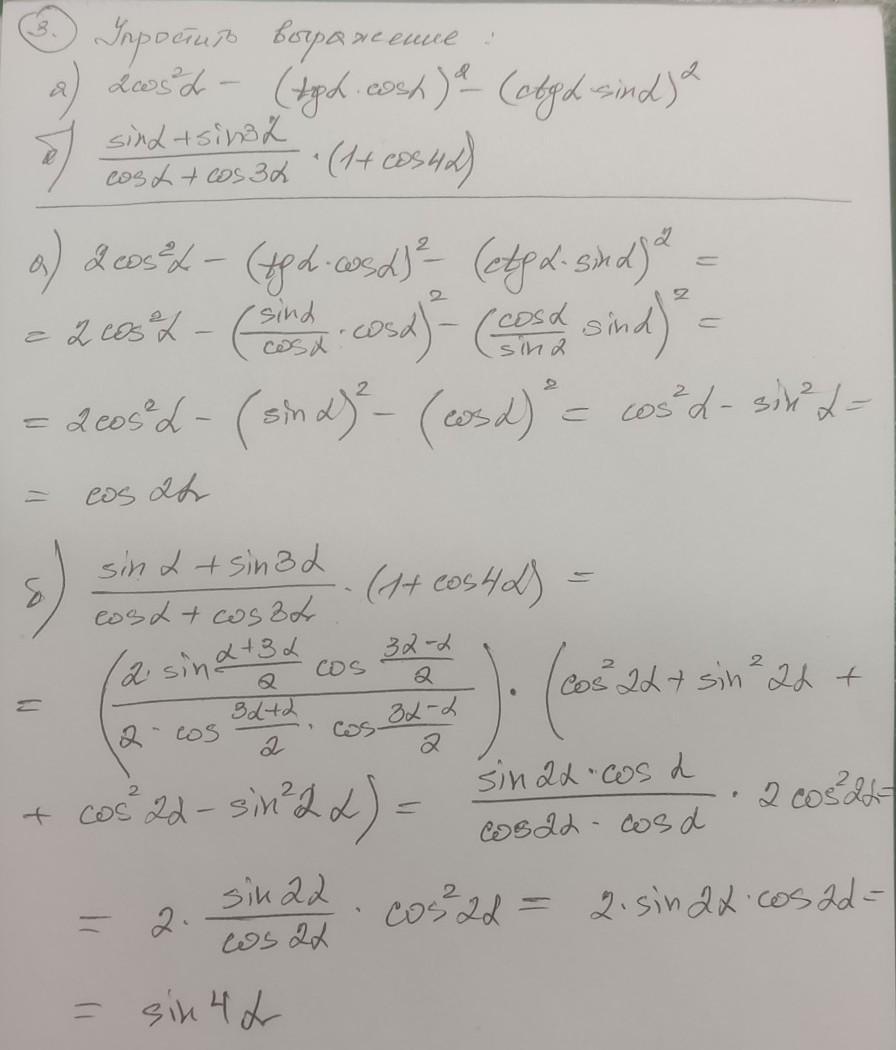 3. Упростить выражение:
а) 2cos²α - (tgα·cosα)² - (ctgα·sinα)²
б) (sinα + sin3α)/(cosα + cos3α) · (1 + cos4α)
а) 2cos²α - (tgα·cosα)² - (ctgα·sinα)² =
= 2cos²α - (sinα/cosα · cosα)² - (cosα/sinα sinα)² =
= 2cos²α - (sinα)² - (cosα)² = cos²α - sin²α =
= cos 2α
б) (sinα + sin3α)/(cosα + cos3α) · (1 + cos4α) =
= ((2·sin (α+3α)/2 cos (3α-α)/2)/(2·cos (3α+α)/2 · cos (3α-α)/2)) · (cos²2α + sin²2α +
+ cos²2α - sin²2α) = (sin2α·cosα)/(cos2α·cosα) · 2cos²2α =
= 2· sin2α/cos2α · cos²2α = 2·sin2α·cos2α =
= sin4α